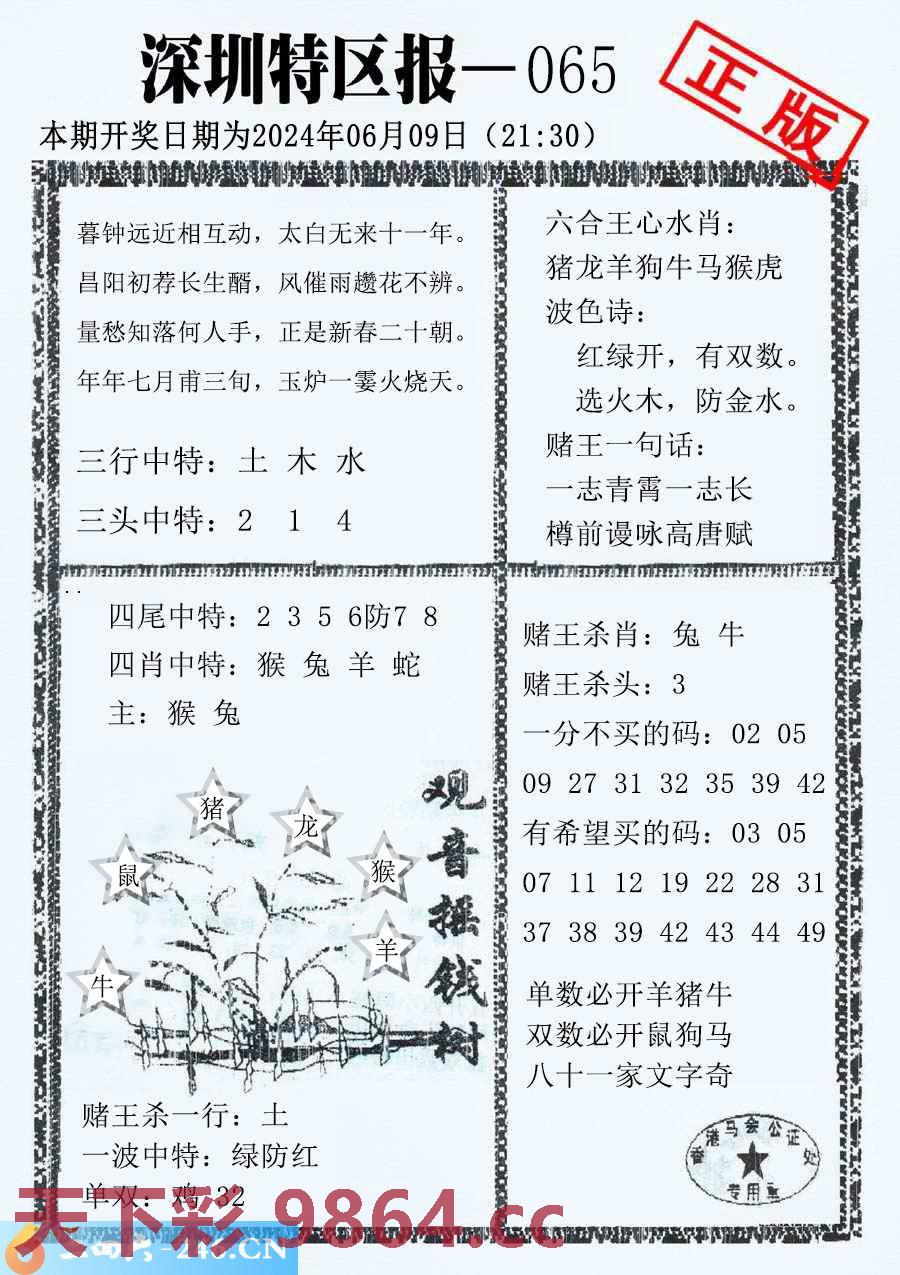 深圳特区报—065
正版
本期开奖日期为2024年06月09日（21:30）
暮钟远近相互动，太白无来十一年。
昌阳初荐长生醑，风催雨趱花不辨。
量愁知落何人手，正是新春二十朝。
年年七月甫三旬，玉炉一霎火烧天。
三行中特：土 木 水
三头中特：2 1 4
六合王心水肖：
猪龙羊狗牛马猴虎
波色诗：
红绿开，有双数。
选火木，防金水。
赌王一句话：
一志青霄一志长
樽前谩咏高唐赋
四尾中特：2 3 5 6防7 8
四肖中特：猴 兔 羊 蛇
主：猴 兔
猪
龙
鼠
猴
羊
牛
观音摇钱树
赌王杀一行：土
一波中特：绿防红
单双：鸡 32
赌王杀肖：兔 牛
赌王杀头：3
一分不买的码：02 05
09 27 31 32 35 39 42
有希望买的码：03 05
07 11 12 19 22 28 31
37 38 39 42 43 44 49
单数必开羊猪牛
双数必开鼠狗马
八十一家文字奇
香港马会公证处
专用章
天下彩 9864.cc